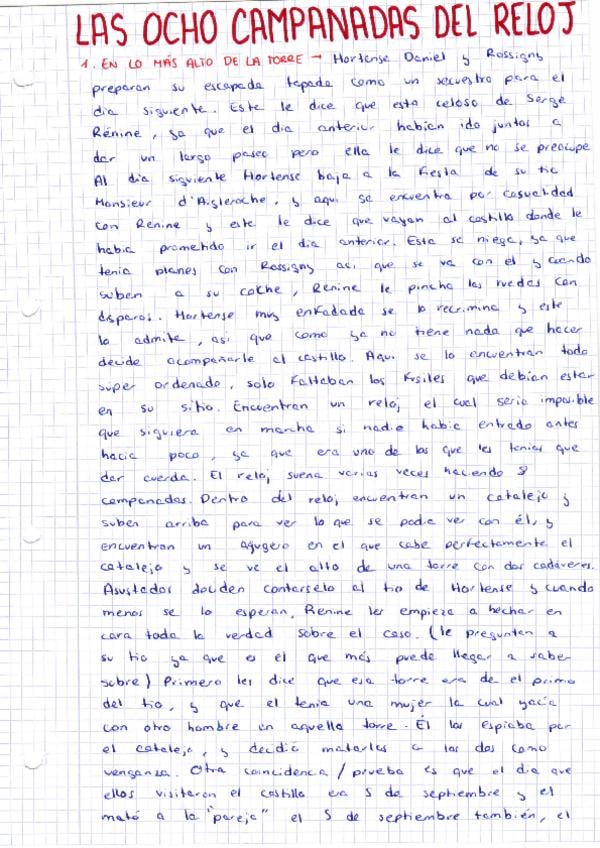 LAS OCHO CAMPANADAS DEL RELOJ
1. EN LO MÁS ALTO DE LA TORRE → Hortense Daniel y Rossigny
preparan su escapada tapada como un secuestro para el
dia siguiente. Este le dice que esta celoso de Serge
Rénine, ya que el dia anterior habian ido juntos a
dar un largo paseo pero ella le dice que no se preocupe
Al dia siguiente Hortense baja a la fiesta de su tio
Monsieur d'Aigleroche, y aqui se encuentra por casualidad
con Renine y este le dice que vayan al castillo donde le
habia prometido ir el dia anterior. Esta se niega, ya que
tenia planes con Rossigny asi que se va con el y cuando
suben a su coche, Renine le pincha las ruedas con
disparos. Hortense muy enfadada se lo recrimina y este
lo admite, asi que como ya no tiene nada que hacer
decide acompañarle al castillo. Aqui se lo encuentran todo
super ordenado, solo faltaban los fusiles que debian estar
en su sitio. Encuentran un reloj el cual seria imposible
que siguiera en marcha si nadie habia entrado antes
hacia poco, ya que era uno de los que les tenias que
dar cuerda. El reloj suena varias veces haciendo 8
campanadas. Dentro del reloj encuentran un catalejo y
suben arriba para ver lo que se podia ver con él, y
encuentran un agugero en el que cabe perfectamente el
catalejo y se ve el alto de una torre con dos cadáveres.
Asustados deciden contarselo al tio de Hortense y cuando
menos se lo esperan, Renine les empieza a hechar en
cara toda la verdad sobre el caso. (le preguntan a
su tio ya que es el que más puede llegar a saber
sobre) Primero les dice que esa torre era de el primo
del tio, y que el tenia una mujer la cual yacía
con otro hombre en aquella torre. Él los espiaba por
el catalejo, y decidió matarles a los dos como
venganza. Otra coincidencia / prueba es que el dia que
ellos visitaron el castillo era 5 de septiembre y el
mató a la "pareja" el 5 de septiembre también, el